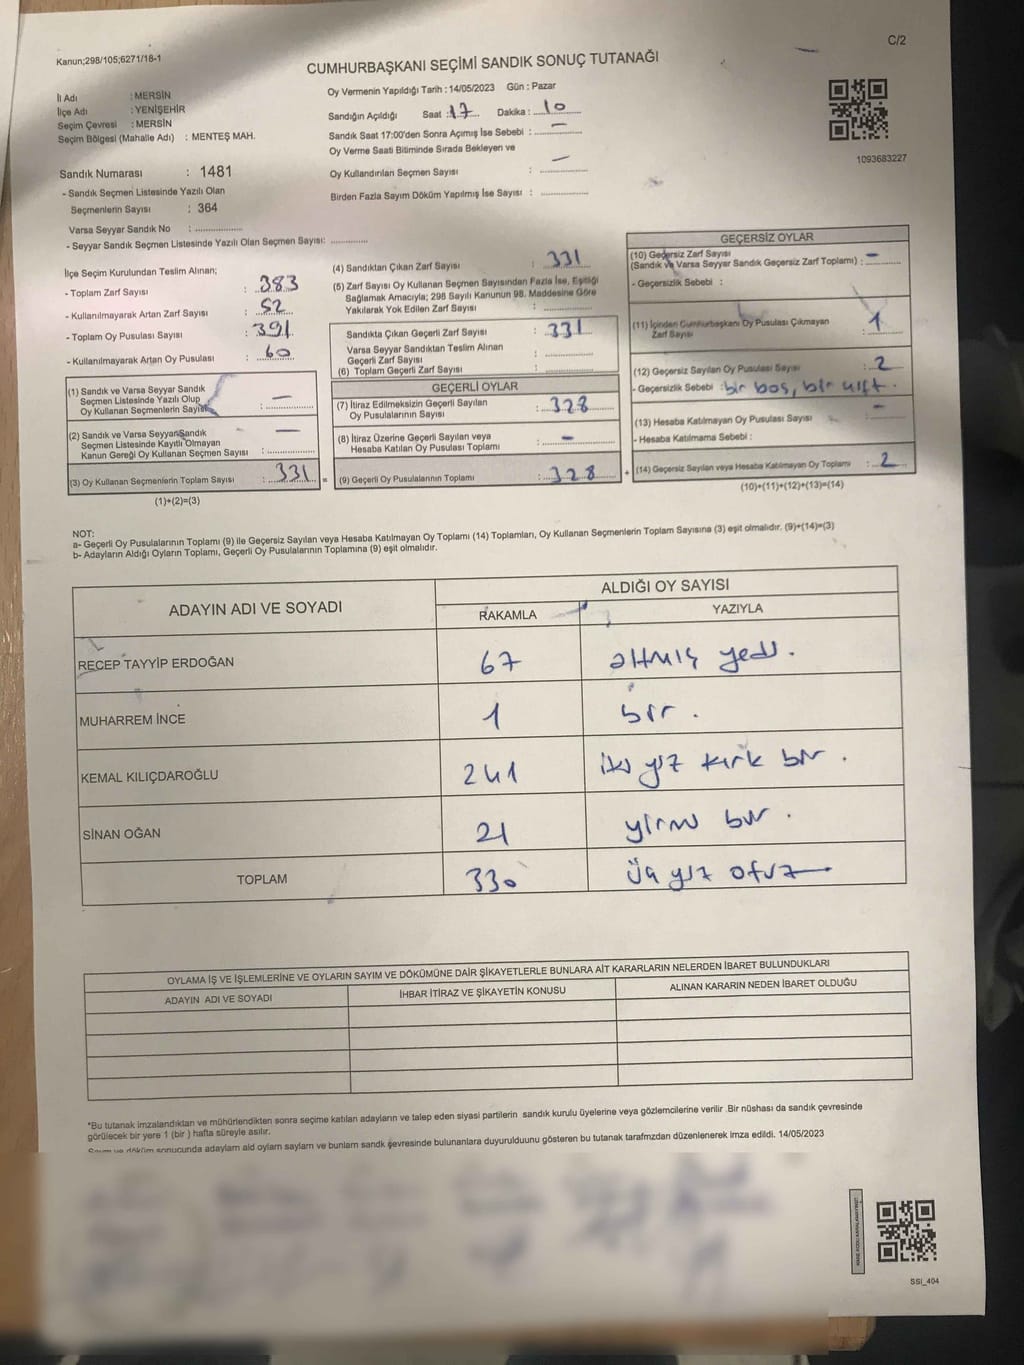 C/2
Kanun;298/105;6271/18-1
CUMHURBAŞKANI SEÇİMİ SANDIK SONUÇ TUTANAĞI
İl Adı : MERSİN
İlçe Adı : YENİŞEHİR
Seçim Çevresi : MERSİN
Seçim Bölgesi (Mahalle Adı) : MENTEŞ MAH.
Sandık Numarası : 1481
- Sandık Seçmen Listesinde Yazılı Olan
Seçmenlerin Sayısı : 364
Varsa Seyyar Sandık No : ..............
- Seyyar Sandık Seçmen Listesinde Yazılı Olan Seçmen Sayısı: ............
Oy Vermenin Yapıldığı Tarih : 14/05/2023 Gün : Pazar
Sandığın Açıldığı Saat : 17 Dakika : 10
Sandık Saat 17:00'den Sonra Açımış İse Sebebi : —
Oy Verme Saati Bitiminde Sırada Bekleyen ve
Oy Kullandırılan Seçmen Sayısı : —
Birden Fazla Sayım Döküm Yapılmış İse Sayısı : ..............
1093683227
İlçe Seçim Kurulundan Teslim Alınan;
- Toplam Zarf Sayısı : 383
- Kullanılmayarak Artan Zarf Sayısı : 52
- Toplam Oy Pusulası Sayısı : 391
- Kullanılmayarak Artan Oy Pusulası : 60
(1) Sandık ve Varsa Seyyar Sandık
Seçmen Listesinde Yazılı Olup
Oy Kullanan Seçmenlerin Sayısı : —
(2) Sandık ve Varsa Seyyar Sandık
Seçmen Listesinde Kayıtlı Olmayan
Kanun Gereği Oy Kullanan Seçmen Sayısı : —
(3) Oy Kullanan Seçmenlerin Toplam Sayısı : 331 =
(1)+(2)=(3)
(4) Sandıktan Çıkan Zarf Sayısı : 331
(5) Zarf Sayısı Oy Kullanan Seçmen Sayısından Fazla İse, Eşitliği
Sağlamak Amacıyla; 298 Sayılı Kanunun 98. Maddesine Göre
Yakılarak Yok Edilen Zarf Sayısı : ..............
Sandıkta Çıkan Geçerli Zarf Sayısı : 331
Varsa Seyyar Sandıktan Teslim Alınan
Geçerli Zarf Sayısı : ..............
(6) Toplam Geçerli Zarf Sayısı : ..............
GEÇERLİ OYLAR
(7) İtiraz Edilmeksizin Geçerli Sayılan
Oy Pusulalarının Sayısı : 328
(8) İtiraz Üzerine Geçerli Sayılan veya
Hesaba Katılan Oy Pusulası Toplamı : —
(9) Geçerli Oy Pusulalarının Toplamı : 328 +
GEÇERSİZ OYLAR
(10) Geçersiz Zarf Sayısı
(Sandık ve Varsa Seyyar Sandık Geçersiz Zarf Toplamı) : —
- Geçersizlik Sebebi :
(11) İçinden Cumhurbaşkanı Oy Pusulası Çıkmayan
Zarf Sayısı : 1
(12) Geçersiz Sayılan Oy Pusulası Sayısı : 2
- Geçersizlik Sebebi : bir boş, bir çift.
(13) Hesaba Katılmayan Oy Pusulası Sayısı : —
- Hesaba Katılmama Sebebi :
(14) Geçersiz Sayılan veya Hesaba Katılmayan Oy Toplamı : 2
(10)+(11)+(12)+(13)=(14)
NOT:
a- Geçerli Oy Pusulalarının Toplamı (9) ile Geçersiz Sayılan veya Hesaba Katılmayan Oy Toplamı (14) Toplamları, Oy Kullanan Seçmenlerin Toplam Sayısına (3) eşit olmalıdır. (9)+(14)=(3)
b- Adayların Aldığı Oyların Toplamı, Geçerli Oy Pusulalarının Toplamına (9) eşit olmalıdır.
ADAYIN ADI VE SOYADI ALDIĞI OY SAYISI
RAKAMLA YAZIYLA
RECEP TAYYİP ERDOĞAN 67 altmış yedi.
MUHARREM İNCE 1 bir.
KEMAL KILIÇDAROĞLU 241 iki yüz kırk bir.
SİNAN OĞAN 21 yirmi bir.
TOPLAM 330 üç yüz otuz
OYLAMA İŞ VE İŞLEMLERİNE VE OYLARIN SAYIM VE DÖKÜMÜNE DAİR ŞİKAYETLERLE BUNLARA AİT KARARLARIN NELERDEN İBARET BULUNDUKLARI
ADAYIN ADI VE SOYADI İHBAR İTİRAZ VE ŞİKAYETİN KONUSU ALINAN KARARIN NEDEN İBARET OLDUĞU
*Bu tutanak imzalandıktan ve mühürlendikten sonra seçime katılan adayların ve talep eden siyasi partilerin sandık kurulu üyelerine veya gözlemcilerine verilir .Bir nüshası da sandık çevresinde
görülecek bir yere 1 (bir ) hafta süreyle asılır.
Sayım ve döküm sonucunda adaylam ald oylam saylam ve bunlam sandk çevresinde bulunanlara duyurulduunu gösteren bu tutanak tarafmzdan düzenlenerek imza edildi. 14/05/2023
SSI_404